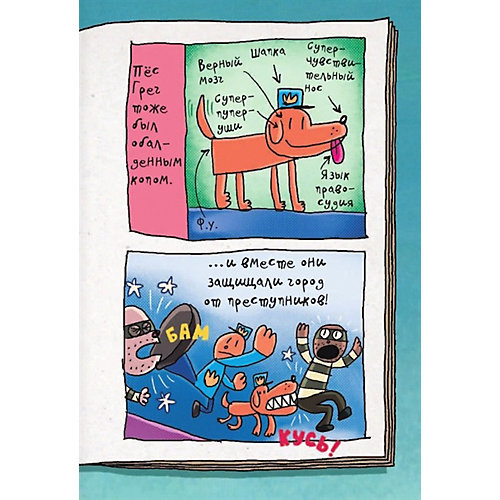 Пёс
Грег
тоже
был
обал-
денным
копом.
Верный
мозг
Шапка
Супер-
чувстви-
тельный
нос
Супер-
пупер-
уши
Язык
право-
судия
Ф.У.
...и вместе они
защищали город
от преступников!
БАМ
КУСЬ!